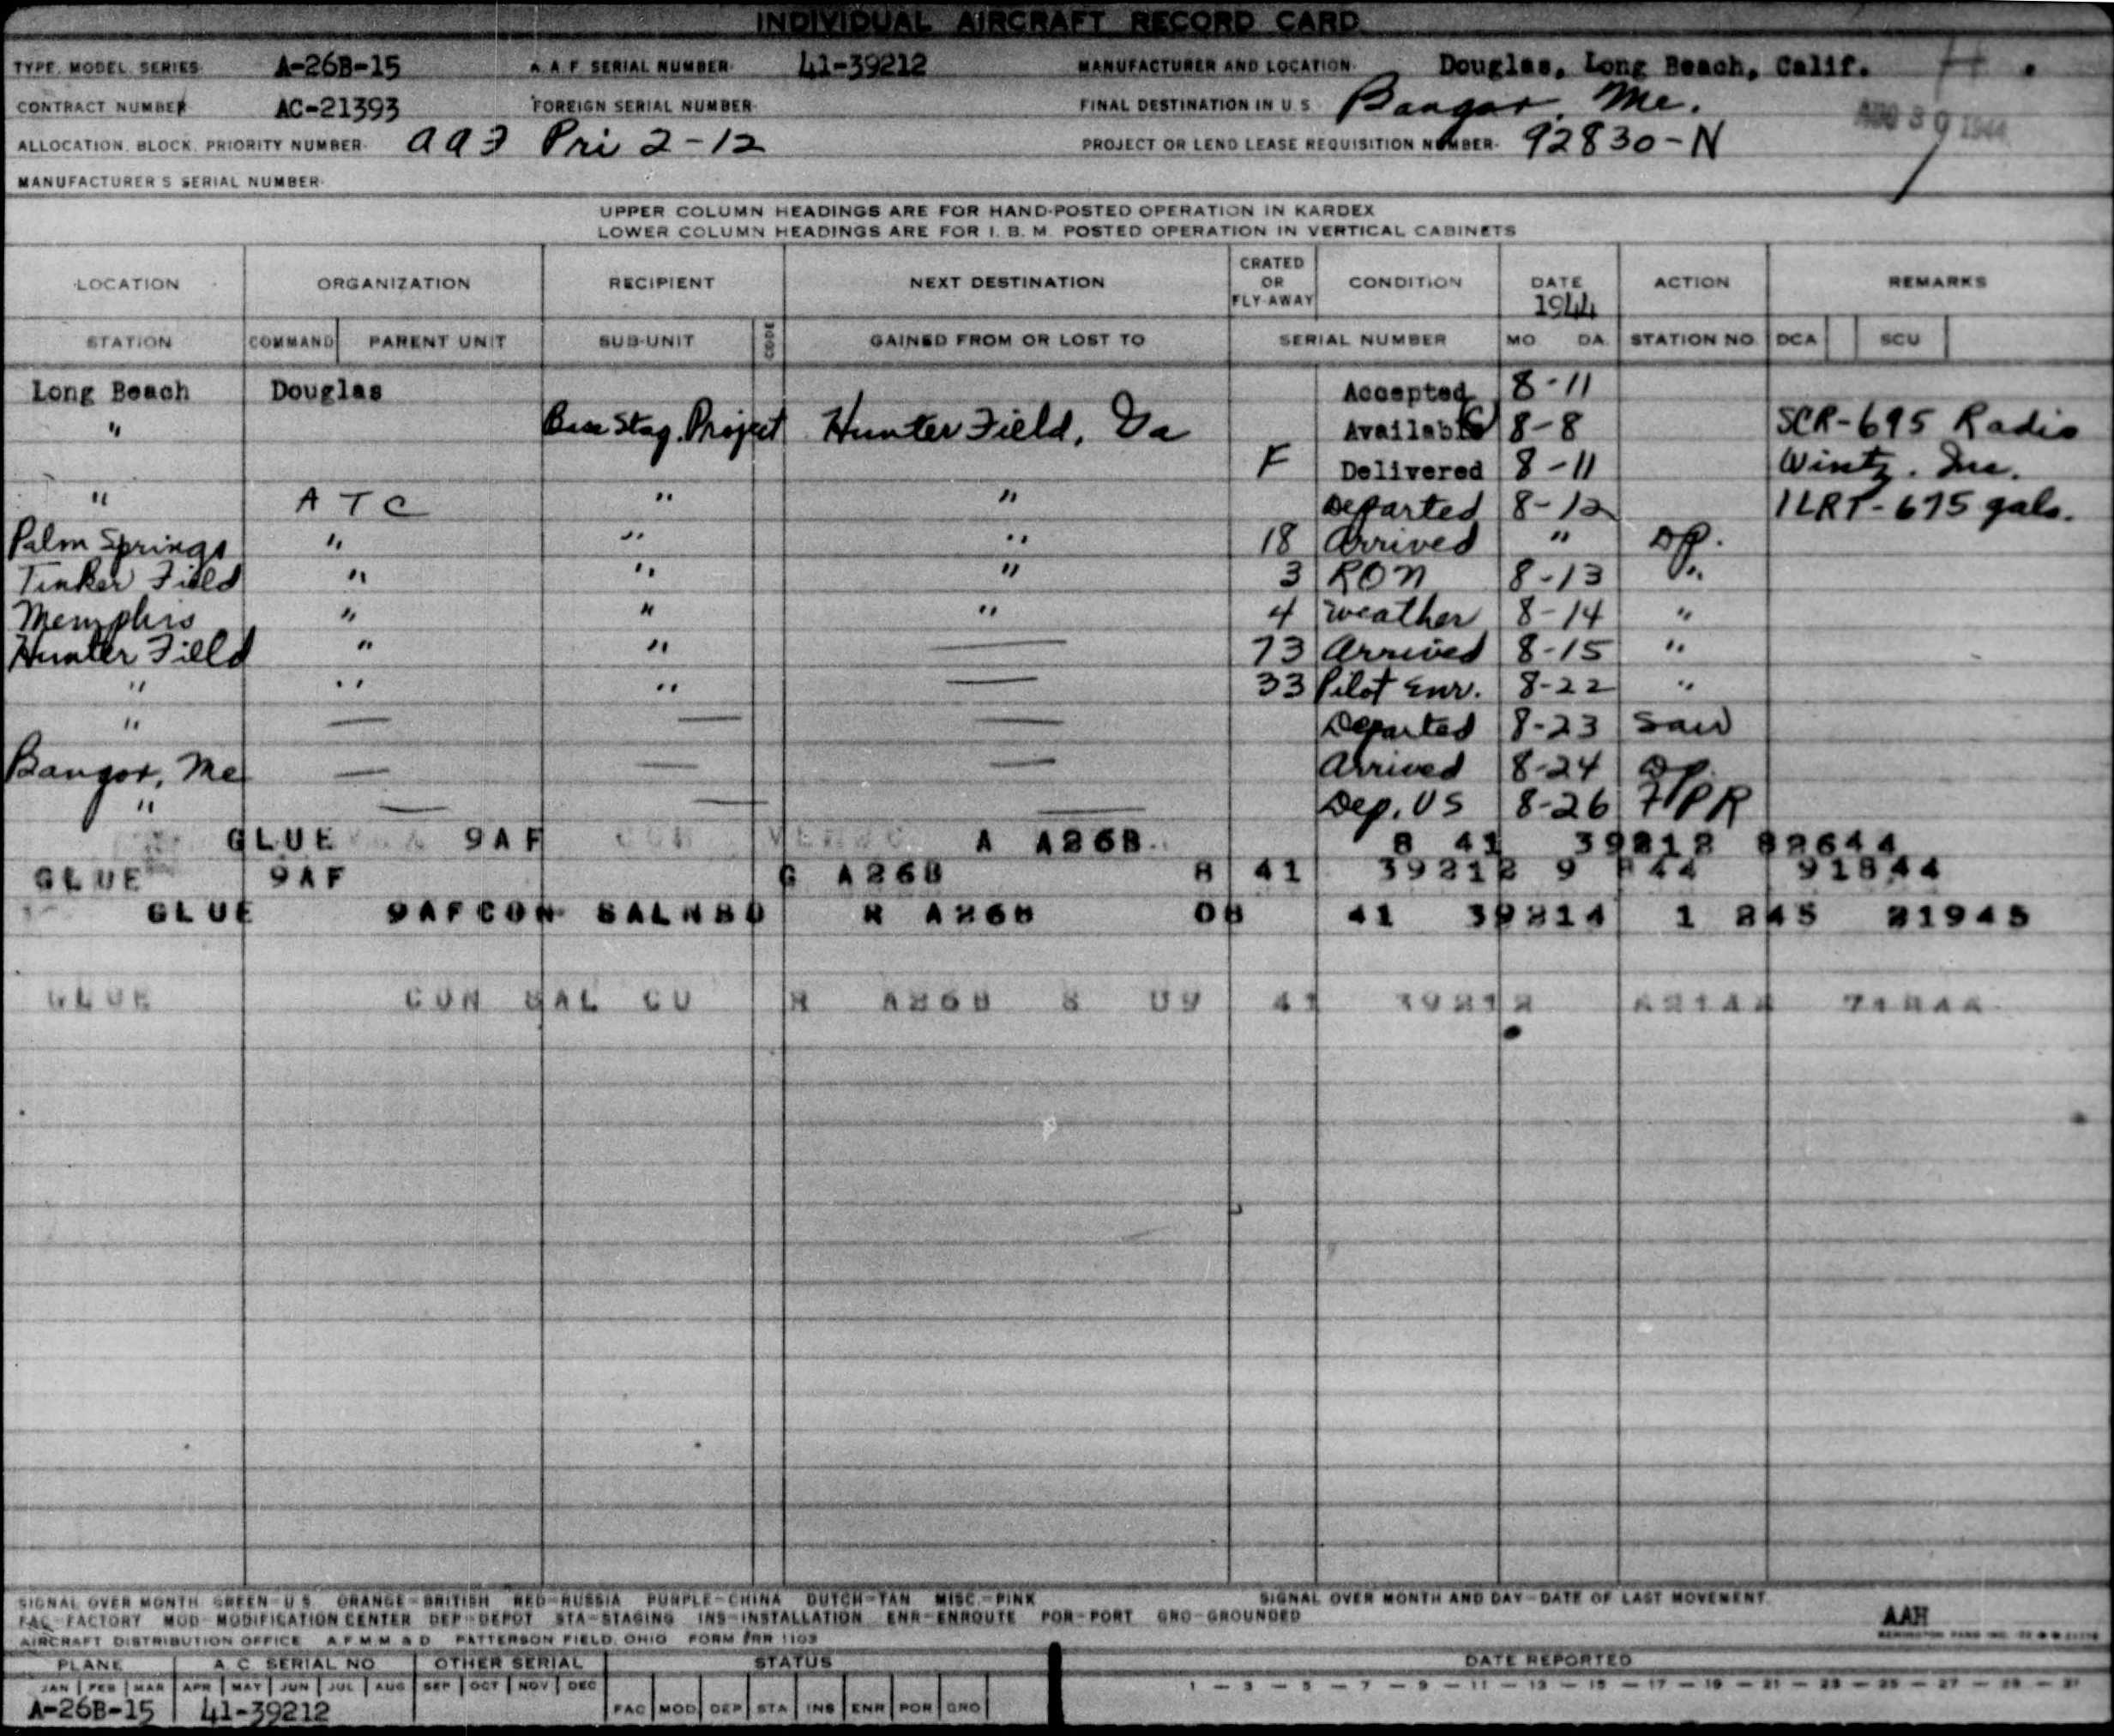 INDIVIDUAL AIRCRAFT RECORD CARD
TYPE, MODEL, SERIES A-26B-15 A. A. F. SERIAL NUMBER 41-39212 MANUFACTURER AND LOCATION Douglas, Long Beach, Calif.
CONTRACT NUMBER AC-21393 FOREIGN SERIAL NUMBER FINAL DESTINATION IN U. S. Bangor, Me.
AUG 30 1944
ALLOCATION, BLOCK, PRIORITY NUMBER Pri 2-12 PROJECT OR LEND LEASE REQUISITION NUMBER 92830-N
MANUFACTURER'S SERIAL NUMBER
UPPER COLUMN HEADINGS ARE FOR HAND-POSTED OPERATION IN KARDEX
LOWER COLUMN HEADINGS ARE FOR I. B. M. POSTED OPERATION IN VERTICAL CABINETS
LOCATION ORGANIZATION RECIPIENT NEXT DESTINATION CRATED OR FLY-AWAY CONDITION DATE 1944 ACTION REMARKS
STATION COMMAND PARENT UNIT SUB-UNIT CODE GAINED FROM OR LOST TO SERIAL NUMBER MO. DA. STATION NO. DCA SCU
Long Beach Douglas Accepted 8-11
" Base Stag. Project Hunter Field, Ga Available 8-8 SCR-695 Radio
F Delivered 8-11 Wintz. Inc.
" ATC " " Departed 8-12 1LRT-675 gals.
Palm Springs " " " 18 Arrived " DP.
Tinker Field " " " 3 RON 8-13 "
Memphis " " " 4 Weather 8-14 "
Hunter Field " " — 73 Arrived 8-15 "
" " " — 33 Pilot Enr. 8-22 "
" — — — Departed 8-23 Saw
Bangor, Me — — — Arrived 8-24 DP.
" — — — Dep. US 8-26 FPR
GLUE 9AF A A26B 8 41 39212 82644
GLUE 9AF G A26B 8 41 39212 9 844 91844
GLUE 9AF CON SAL NBD R A26B 08 41 39214 1 245 21945
GLUE CON SAL CU R A26B 8 09 41 39212
SIGNAL OVER MONTH GREEN=U S. ORANGE=BRITISH RED=RUSSIA PURPLE=CHINA DUTCH=TAN MISC.=PINK SIGNAL OVER MONTH AND DAY=DATE OF LAST MOVEMENT
FAC=FACTORY MOD=MODIFICATION CENTER DEP=DEPOT STA=STAGING INS=INSTALLATION ENR=ENROUTE POR=PORT GRO=GROUNDED
AAH
AIRCRAFT DISTRIBUTION OFFICE A F M M & D PATTERSON FIELD, OHIO FORM #RR 1103
PLANE A. C. SERIAL NO OTHER SERIAL STATUS DATE REPORTED
JAN FEB MAR APR MAY JUN JUL AUG SEP OCT NOV DEC 1 — 3 — 5 — 7 — 9 — 11 — 13 — 15 — 17 — 19 — 21 — 23 — 25 — 27 — 29 — 31
A-26B-15 41-39212 FAC MOD DEP STA INS ENR POR GRO